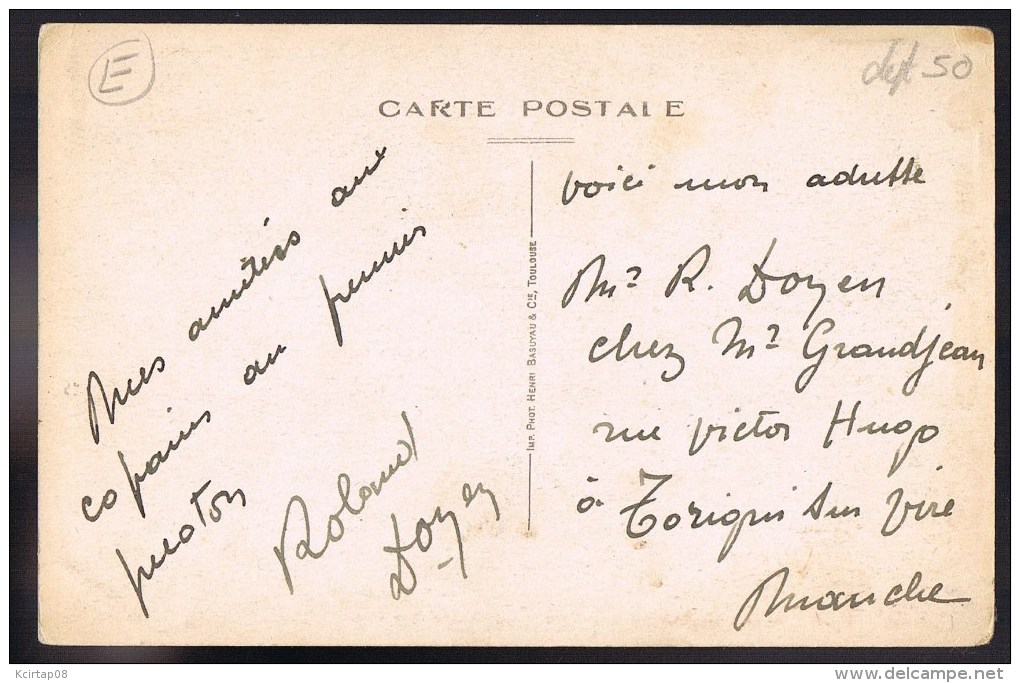 E
dept 50
CARTE POSTALE
Mes amitiés aux
copains au premier
peloton
Roland
Doyen
IMP. PHOT. HENRI BASUYAU & CIE, TOULOUSE
voici mon adresse
Mr R. Doyen
chez Mr Grandjean
rue Victor Hugo
à Torigni sur vire
Manche
Kcirtap08
www.delcampe.net